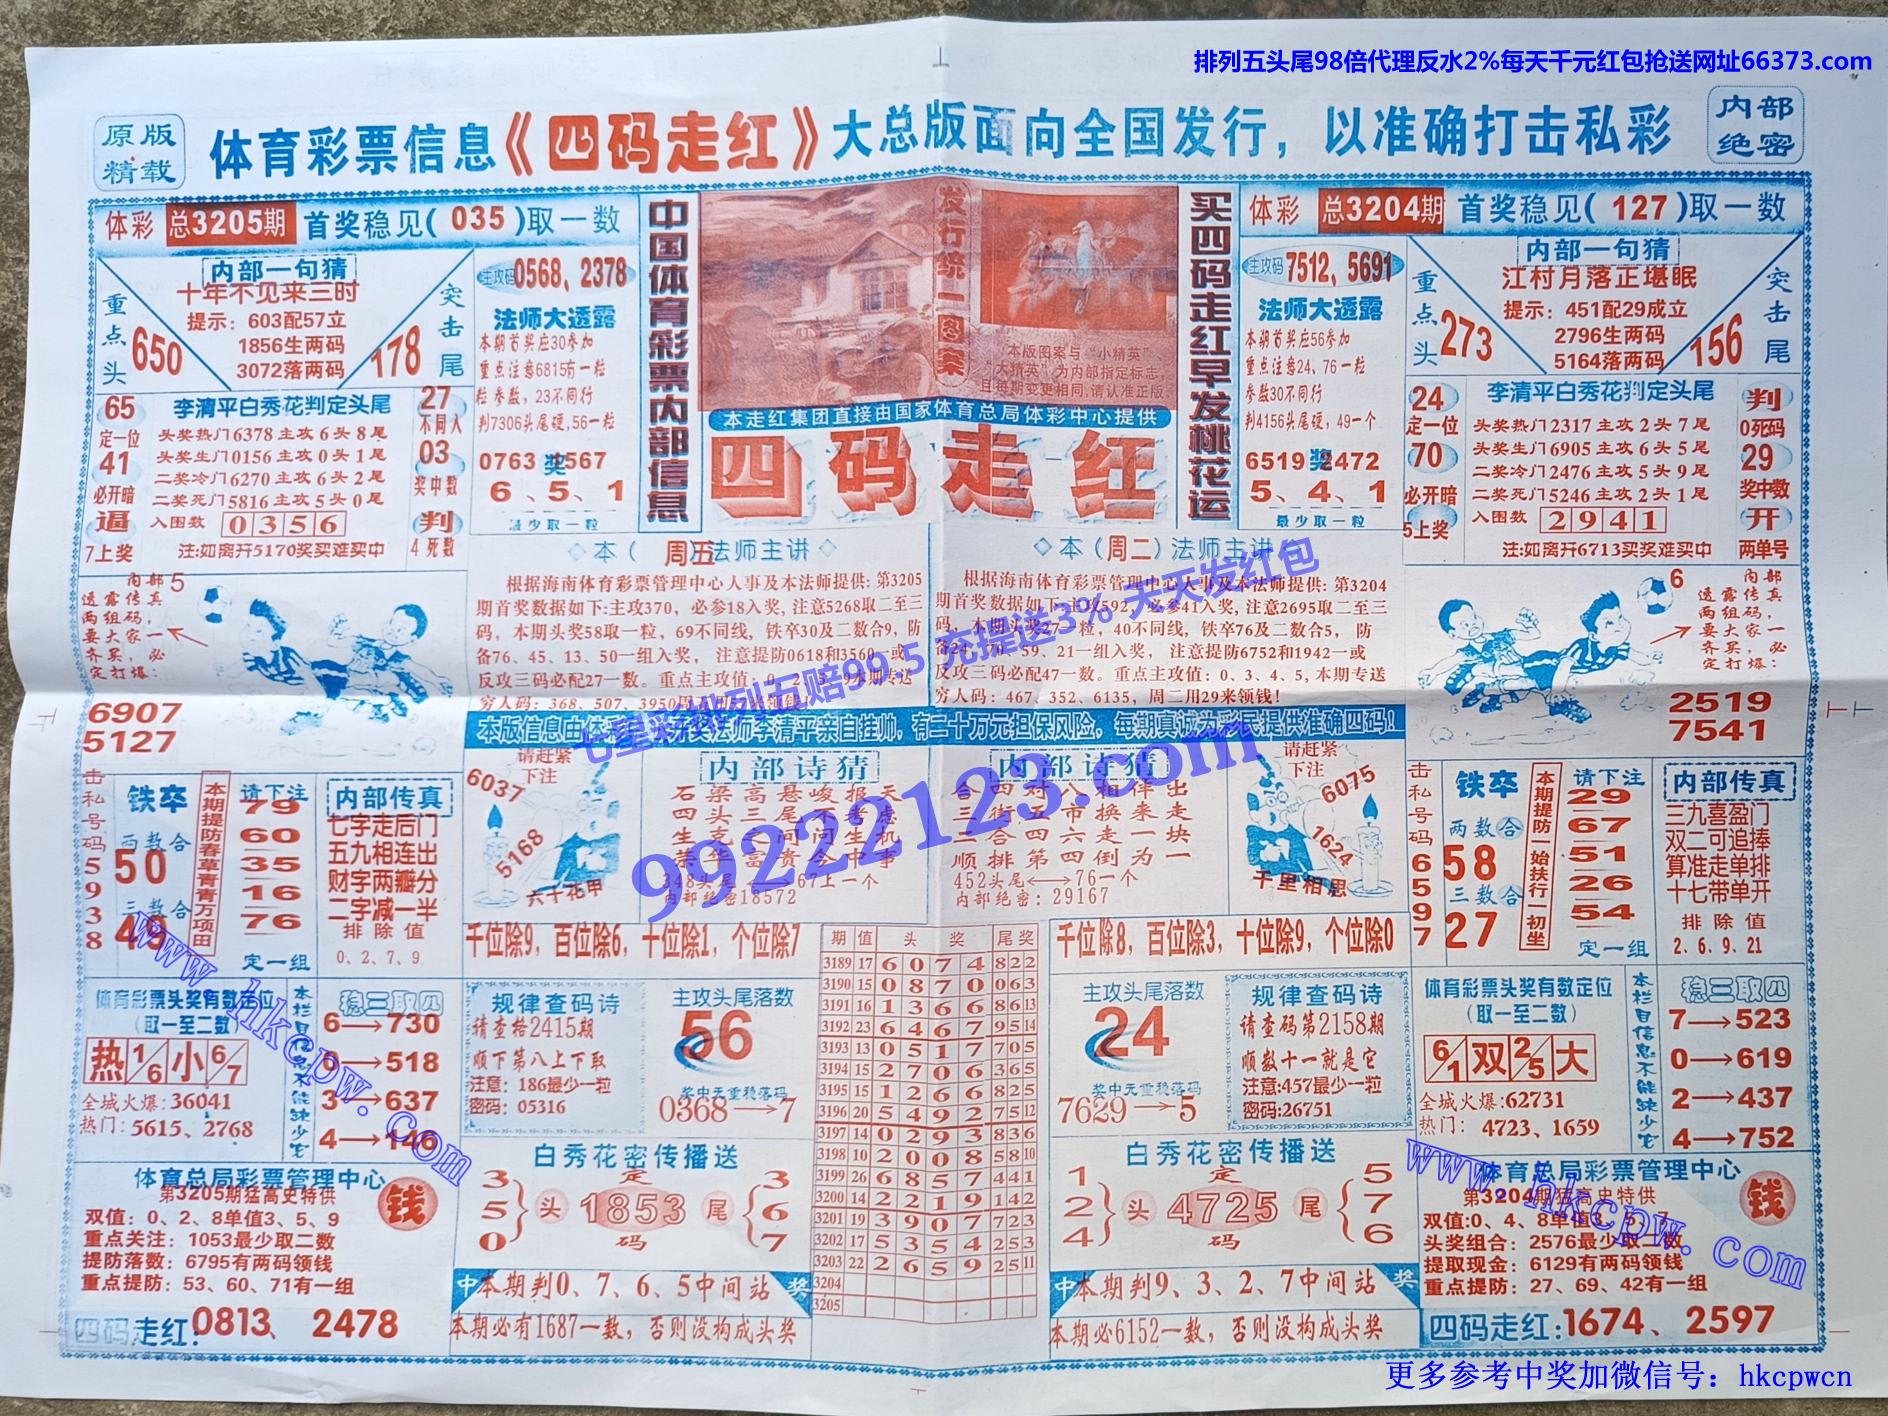 排列五头尾98倍代理反水2%每天千元红包抢送网址66373.com
原版
精载
体育彩票信息《四码走红》大总版面向全国发行，以准确打击私彩
内部
绝密
体彩 总3205期 首奖稳见(035)取一数
内部一句猜
十年不见来三时
提示：603配57立
1856生两码
3072落两码
重点头
650
突击尾
178
主攻码 0568、2378
法师大透露
本期首奖应30参加
重点注意6815有一粒
粒参数，23不同行
判7306头尾硬,56一粒
0763 奖 2567
6、5、1
最少取一粒
65
定一位
41
必开暗
逼
7上奖
李清平白秀花判定头尾
头奖热门6378主攻6头8尾
头奖生门0156主攻0头1尾
二奖冷门6270主攻6头2尾
二奖死门5816主攻5头0尾
入围数 0356
注:如离开5170奖买难买中
27
不同入
03
奖中数
判
4死数
中国体育彩票内部信息
发行统一图案
本版图案与“小精英”
大精英”为内部指定标志,
且每期变更相同,请认准正版
本走红集团直接由国家体育总局体彩中心提供
四码走红
买四码走红早发桃花运
体彩 总3204期 首奖稳见(127)取一数
主攻码 7512、5691
法师大透露
本期首奖应56参加
重点注意24、76一粒
参数30不同行
判4156头尾硬，49一个
6519 奖 2472
5、4、1
最少取一粒
内部一句猜
江村月落正堪眠
提示：451配29成立
2796生两码
5164落两码
重点头
273
突击尾
156
24
定一位
70
必开暗
5上奖
李清平白秀花判定头尾
头奖热门2317主攻2头7尾
头奖生门6905主攻6头5尾
二奖冷门2476主攻5头9尾
二奖死门5246主攻2头1尾
入围数 2941
注:如离开6713买奖难买中
判
0死码
29
奖中数
开
两单号
内部 5
透露传真
两组码，
要大家一
齐买，必
定打爆：
6907
5127
◇本（周五）法师主讲◇
根据海南体育彩票管理中心人事及本法师提供: 第3205
期首奖数据如下:主攻370，必参18入奖, 注意5268取二至三
码，本期头奖58取一粒，69不同线, 铁卒30及二数合9，防
备76、45、13、50一组入奖， 注意提防0618和3560一或
反攻三码必配27一数。重点主攻值：
9本期专送
穷人码：368、507、3950
◇本（周二）法师主讲◇
根据海南体育彩票管理中心人事及本法师提供: 第3204
期首奖数据如下:主攻592，必参41入奖, 注意2695取二至三
码，本期头奖27一粒，40不同线，铁卒76及二数合5，防
备24、70、59、21一组入奖， 注意提防6752和1942一或
反攻三码必配47一数。重点主攻值：0、3、4、5, 本期专送
穷人码：467、352、6135，周二用29来领钱！
6 内部
透露传真
两组码，
要大家一
齐买，必
定打爆：
2519
7541
七星彩排列五赔99.5 充提送3% 天天发红包
99222123.com
奖法师李清平亲自挂帅, 有二十万元担保风险，每期真诚为彩民提供准确四码!
击私号码5938
铁卒
两数合
50
三数合
49
本期提防春草青青万项田
请下注
79
60
35
16
76
定一组
内部传真
七字走后门
五九相连出
财字两瓣分
二字减一半
排除值
0、2、7、9
请赶紧
下注
6037
5168
六十花甲
内部诗猜
石梁高悬峻报天
四头三尾不考虑
生克之间问生机
荣华富贵合中事
348头尾 67上一个
内部绝密18572
内部诗猜
合四对八相伴出
三街五市换来走
三合四六走一块
顺排第四倒为一
452头尾⟷76一个
内部绝密：29167
请赶紧
下注
6075
1624
千里相思
击私号码6597
铁卒
两数合
58
三数合
27
本期提防一始扶行一初坐
请下注
29
67
51
26
54
定一组
内部传真
三九喜盈门
双二可追捧
算准走单排
十七带单开
排除值
2.6.9.21
千位除9，百位除6，十位除1，个位除7
千位除8，百位除3，十位除9，个位除0
体育彩票头奖有数定位
(取一至二数)
热 1/6 小 6/7
全城火爆：36041
热门：5615、2768
本栏目信息不能缺少它
稳三取四
6→730
0→518
3→637
4→146
规律查码诗
请查格2415期
顺下第八上下取
注意：186最少一粒
密码：05316
主攻头尾落数
56
奖中无重稳落码
0368→7
期 值 头奖 尾奖
3189 17 6074 822
3190 15 0870 063
3191 16 1366 8613
3192 23 6467 9514
3193 13 0517 705
3194 15 2706 365
3195 15 1266 825
3196 20 5492 7512
3197 14 0293 836
3198 10 2008 5810
3199 26 6857 441
3200 14 2219 142
3201 19 3907 723
3202 17 5354 253
3203 22 2659 2511
3204
3205
主攻头尾落数
24
奖中无重稳落码
7629→5
规律查码诗
请查码第2158期
顺数十一就是它
注意:457最少一粒
密码:26751
体育彩票头奖有数定位
(取一至二数)
6/1 双 2/5 大
全城火爆:62731
热门： 4723、1659
本栏目信息不能缺少它
稳三取四
7→523
0→619
2→437
4→752
体育总局彩票管理中心
第3205期猛高史特供
钱
双值：0、2、8单值3、5、9
重点关注：1053最少取二数
提防落数：6795有两码领钱
重点提防：53、60、71有一组
四码走红：0813、2478
白秀花密传播送
3
5
0
头
定
1853
码
尾
3
6
7
中 本期判0、7、6、5中间站 奖
本期必有1687一数，否则没构成头奖
白秀花密传播送
1
2
4
头
定
4725
码
尾
5
7
6
中 本期判9、3、2、7中间站 奖
本期必6152一数，否则没构成头奖
体育总局彩票管理中心
第3204期猛高史特供
钱
双值:0、4、8单值3、5、7
头奖组合：2576最少取二数
提取现金：6129有两码领钱
重点提防：27、69、42有一组
四码走红:1674、2597
www.hkcpw.com
www.hkcpw.com
更多参考中奖加微信号：hkcpwcn